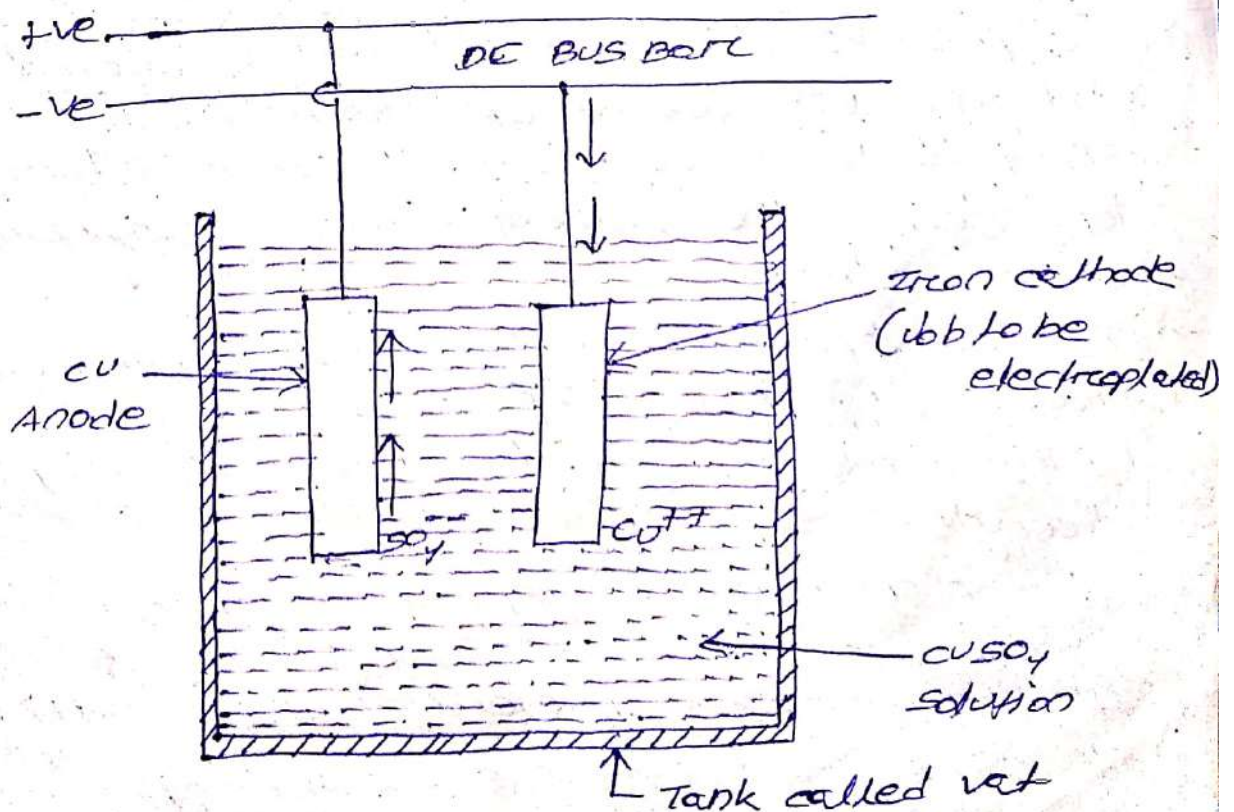 +ve
DC BUS BAR
-ve
Iron cathode
(Job to be
electroplated)
CU
Anode
SO4--
CU++
CUSO4
solution
Tank called vat